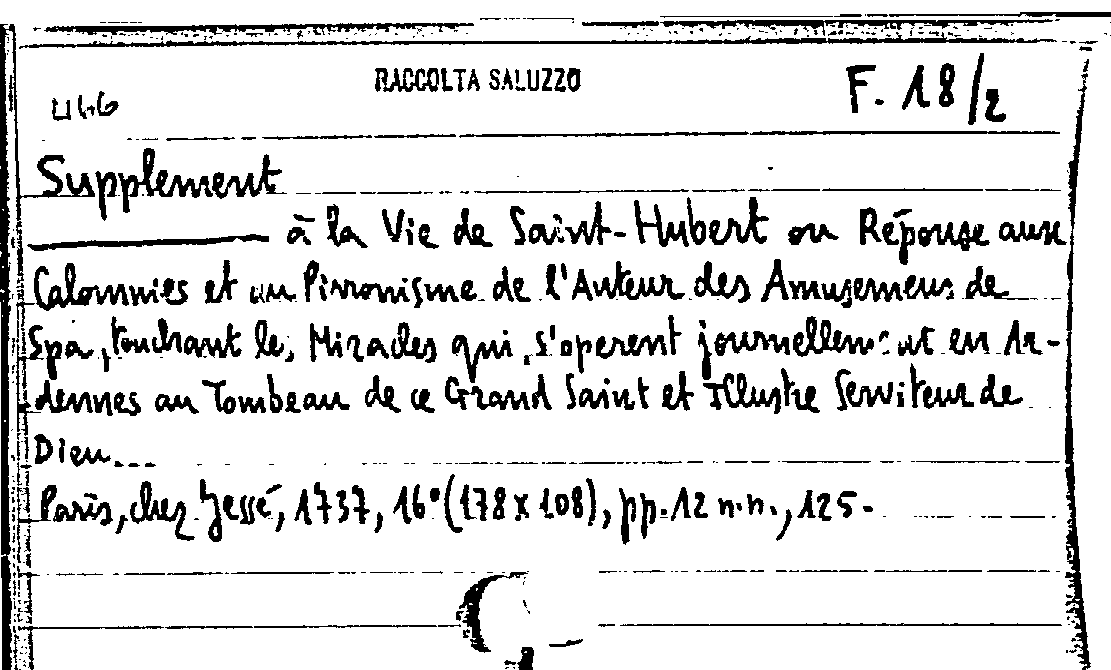 RACCOLTA SALUZZO
F. 18/2
Supplement
à la Vie de Saint-Hubert ou Réponse aux
Calomnies et au Pirronisme de l'Auteur des Amusemens de
Spa, touchant les Miracles qui s'operent journellement en Ar-
dennes au Tombeau de ce Grand Saint et Illustre Serviteur de
Dieu...
Paris, chez Jessé, 1737, 16° (178 x 108), pp. 12 n.n., 125.